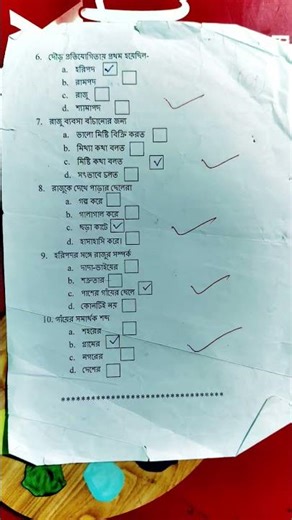 6. দৌড় প্রতিযোগিতায় প্রথম হয়েছিল-
a. হরিপদ
b. রামপদ
c. রাজু
d. শ্যামাপদ
7. রাজু ব্যবসা বাঁচানোর জন্য
a. ভালো মিষ্টি বিক্রি করত
b. মিথ্যা কথা বলত
c. মিষ্টি কথা বলত
d. সৎভাবে চলত
8. রাজুকে দেখে পাড়ার ছেলেরা
a. গল্প করে
b. গালাগাল করে
c. ছড়া কাটে
d. হাসাহাসি করে।
9. হরিপদর সঙ্গে রাজুর সম্পর্ক
a. দাদা-ভাইয়ের
b. শত্রুতার
c. পাশের গাঁয়ের ছেলে
d. কোনটিই নয়
10. গাঁয়ের সমার্থক শব্দ
a. শহরের
b. গ্রামের
c. নগরের
d. দেশের